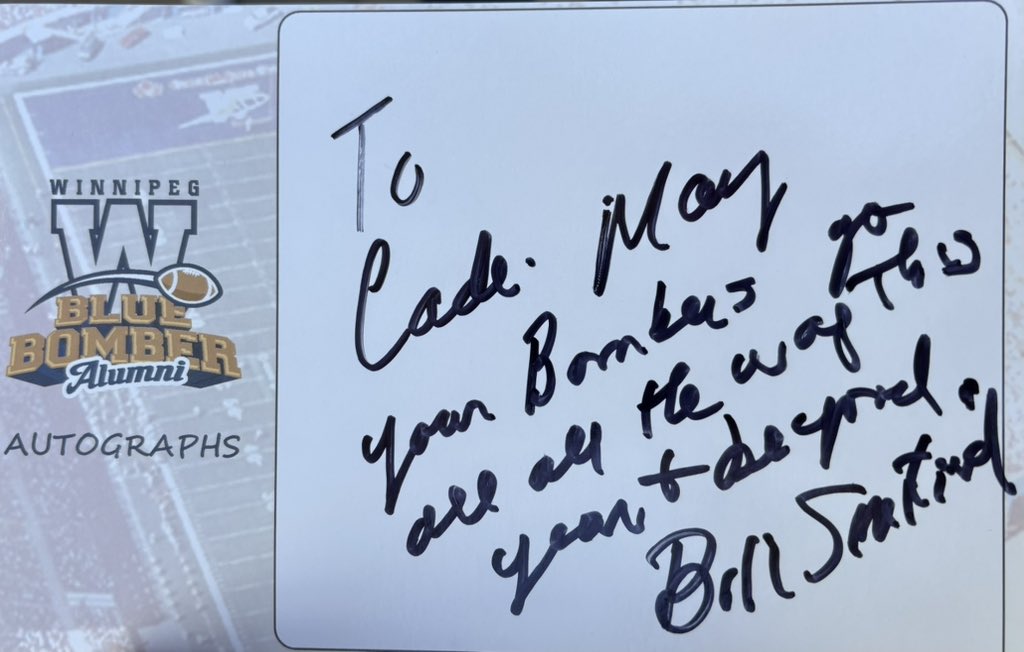 WINNIPEG
W
BLUE
BOMBER
Alumni
AUTOGRAPHS
To
Cade. May
your Bombers go
all all the way This
year + beyond.
Bill